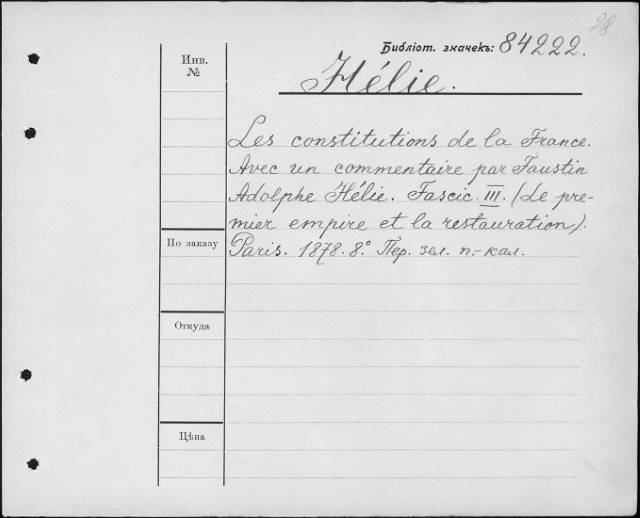 28
Библіот. значекъ: 84222.
Инв.
№
Hélie.
Les constitutions de la France.
Avec un commentaire par Faustin
Adolphe Hélie. Fascic. III. (Le pre-
mier empire et la restauration).
Paris. 1878. 8.° Пер. зел. п.-кал.
По заказу
Откуда
Цѣна